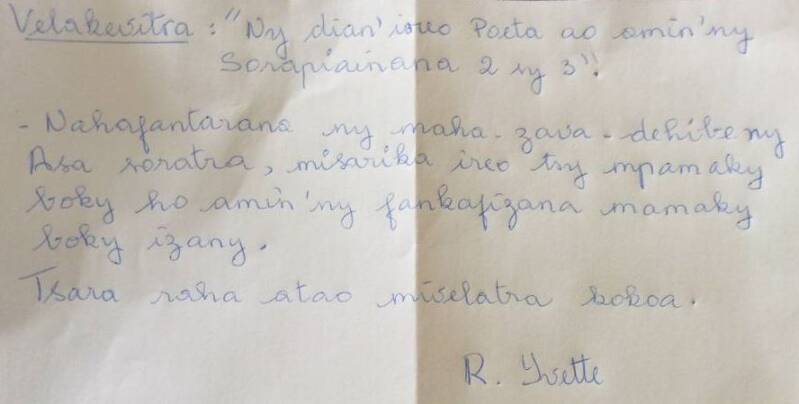 Velakevitra : "Ny dian'ireo Poeta ao amin'ny
Sorapiainana 2 sy 3".
- Nahafantarana ny maha-zava-dehibe ny
Asa soratra, misarika ireo tsy mpamaky
boky ho amin'ny fankafizana mamaky
boky izany.
Tsara raha atao miselatra kokoa.
R. Yvette